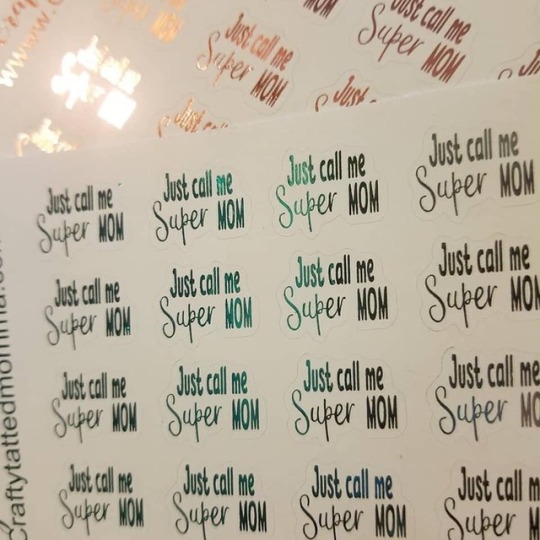 Just call me
Super MOM
Just call me
Super MOM
Just
Just call me
Super MOM
Just call me
Super MOM
Just call me
Super MOM
Just call me
Super MOM
Just call me
Super MOM
Just call me
Super MOM
Just call me
Super MOM
Just call me
Super MOM
Just call me
Super MOM
Just call me
Super MOM
Just call me
Super MOM
Just call me
Super MOM
Just call me
Super MOM
Just call me
Super MOM
Just call me
Super MOM
Just call me
Super MOM
Craftytattedmomma.com